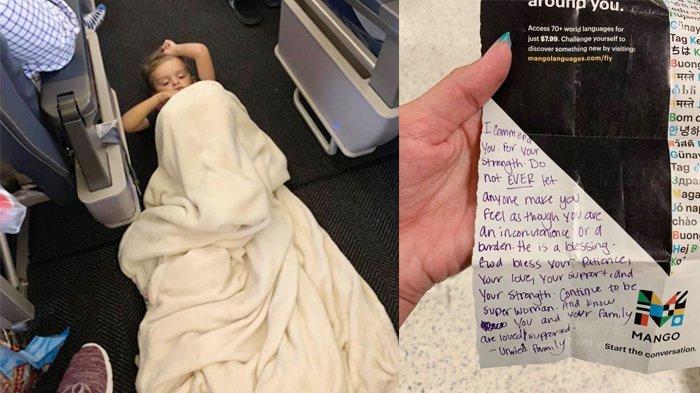 around you.
Access 70+ world languages for
just $7.99. Challenge yourself to
discover something new by visiting:
mangolanguages.com/fly
I commend
you for your
strength. Do
not EVER let
anyone make you
feel as though you are
an inconvenience or a
burden. He is a blessing.
God bless your patience,
your love, your support, and
your strength. Continue to be
super woman. And know
you and your family
are loved & supported.
- United family
MANGO
Start the conversation.
Tag
Buong
Tag
Magan
chào
Buong
Hej